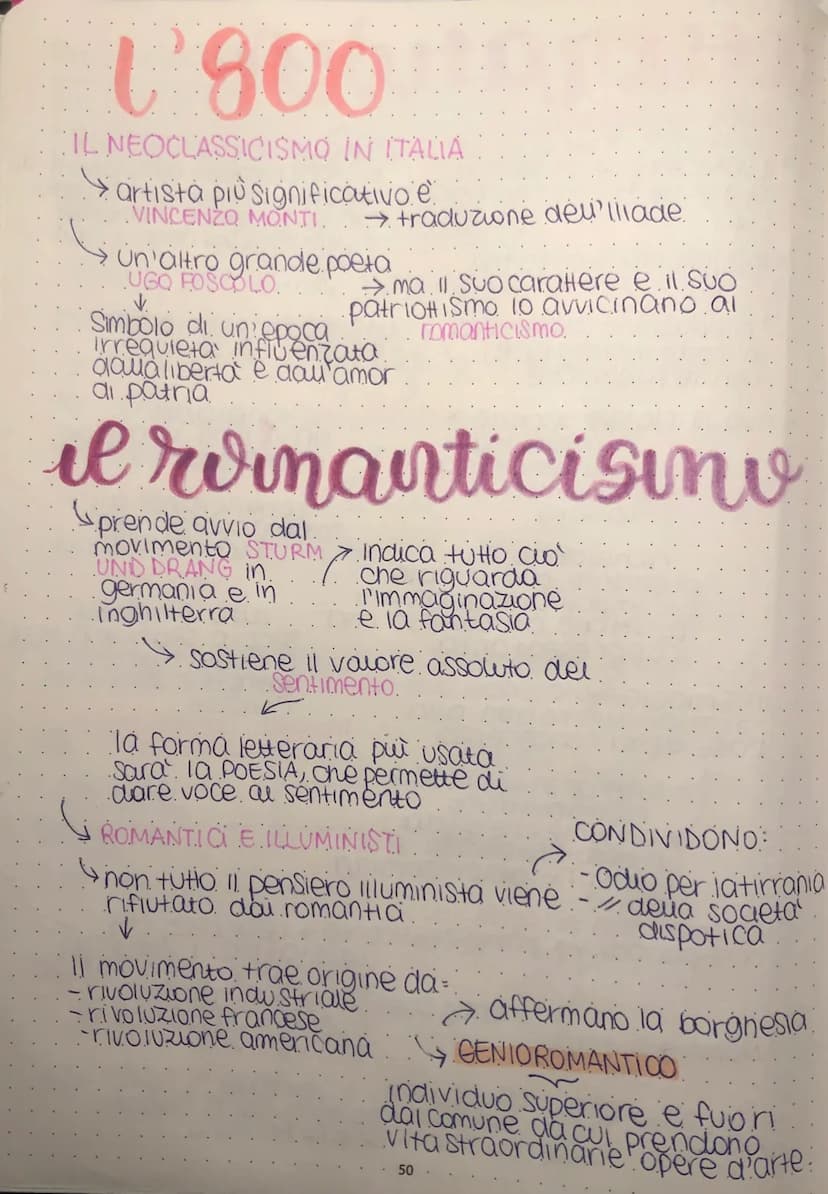 l'800
IL NEOCLASSICISMO IN ITALIA
↳ artista più significativo è
VINCENZO MONTI → traduzione dell'Iliade
↳ un'altro grande poeta
UGO FOSCOLO → ma il suo carattere e il suo
patriottismo lo avvicinano al
romanticismo
↓
Simbolo di un'epoca
irrequieta influenzata
dalla libertà e dall'amor
di patria
il romanticismo
↳ prende avvio dal
movimento STURM
UND DRANG in
germania e in
inghilterra
→ indica tutto ciò
che riguarda
l'immaginazione
e la fantasia
↳ sostiene il valore assoluto del
sentimento
↙
la forma letteraria più usata
sarà la POESIA, che permette di
dare voce al sentimento
↳ ROMANTICI E ILLUMINISTI
↳ non tutto il pensiero illuminista viene
rifiutato dai romantici
→ CONDIVIDONO:
- odio per la tirrania
-〃 della società
dispotica
↓
Il movimento trae origine da:
- rivoluzione industriale
- rivoluzione francese
- rivoluzione americana
→ affermano la borghesia
↳ GENIO ROMANTICO
individuo superiore e fuori
dal comune da cui prendono
vita straordinarie opere d'arte.
50